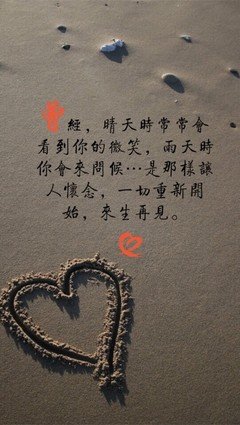 曾經，晴天時常常會
看到你的微笑，雨天時
你會來問候…是那樣讓
人懷念，一切重新開
始，來生再見。